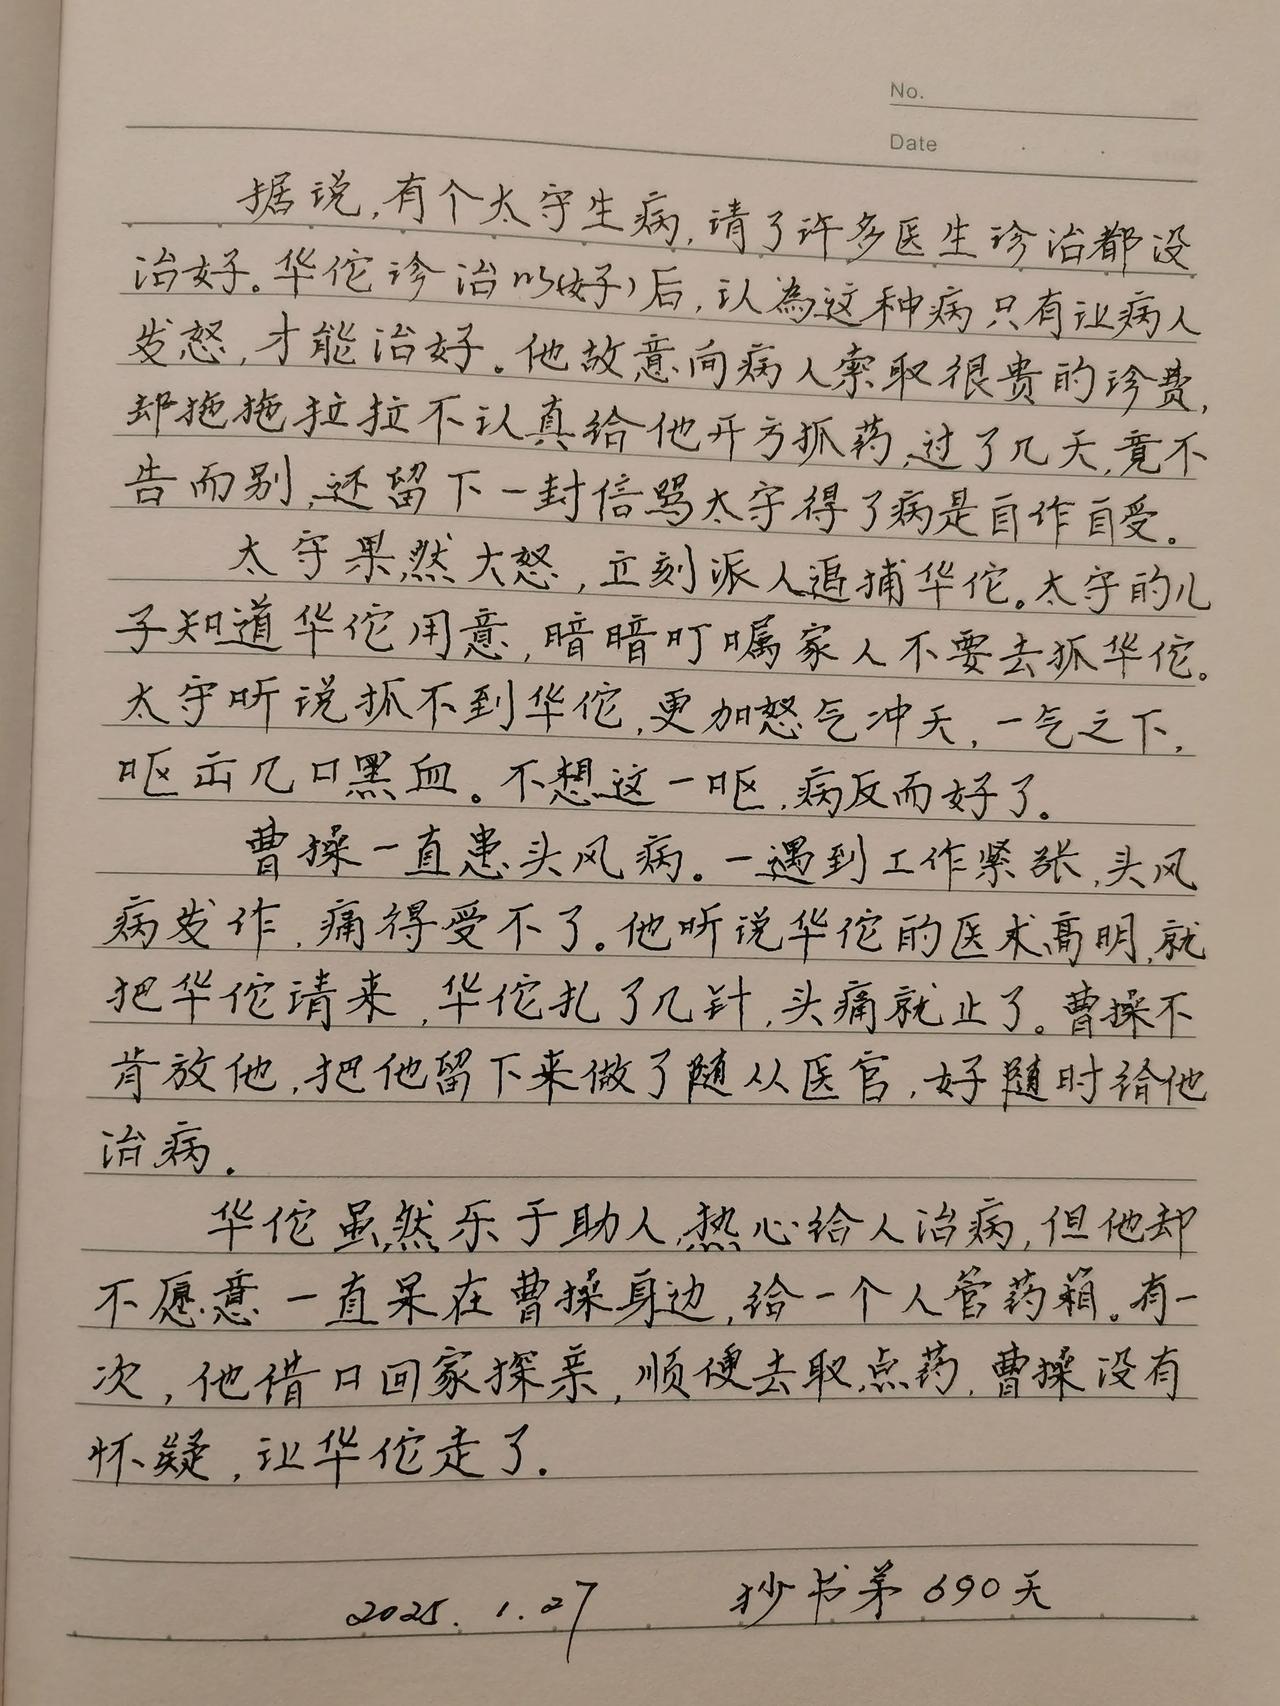 No.
Date
据说,有个太守生病,请了许多医生诊治都没
治好。华佗诊治以(好)后,认為这种病只有让病人
发怒,才能治好。他故意向病人索取很贵的诊费,
却拖拖拉拉不认真给他开方抓药,过了几天,竟不
告而别,还留下一封信骂太守得了病是自作自受。
太守果然大怒,立刻派人追捕华佗。太守的儿
子知道华佗用意,暗暗叮嘱家人不要去抓华佗。
太守听说抓不到华佗,更加怒气冲天,一气之下,
呕出几口黑血。不想这一呕,病反而好了。
曹操一直患头风病。一遇到工作紧张,头风
病发作,痛得受不了。他听说华佗的医术高明,就
把华佗请来,华佗扎了几针,头痛就止了。曹操不
肯放他,把他留下来做了随从医官,好随时给他
治病.
华佗虽然乐于助人,热心给人治病,但他却
不愿意一直呆在曹操身边,给一个人管药箱。有一
次,他借口回家探亲,顺便去取点药,曹操没有
怀疑,让华佗走了.
2025.1.27 抄书第690天